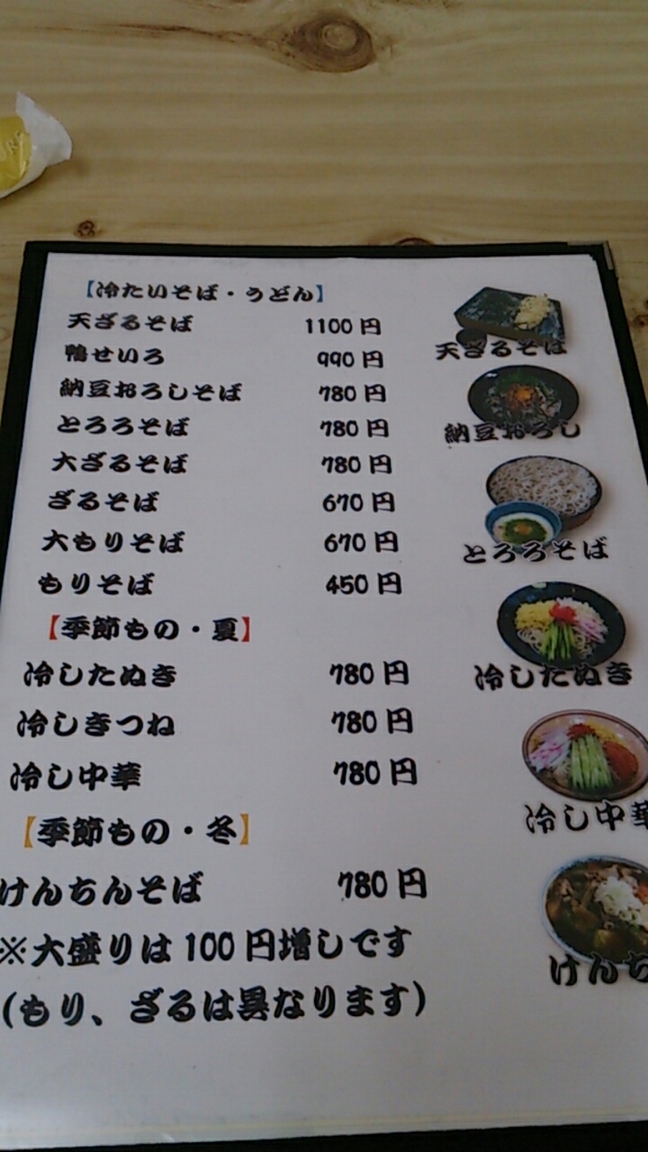 【冷たいそば・うどん】
天ざるそば 1100円
鴨せいろ 990円
納豆おろしそば 780円
とろろそば 780円
大ざるそば 780円
ざるそば 670円
大もりそば 670円
もりそば 450円
【季節もの・夏】
冷したぬき 780円
冷しきつね 780円
冷し中華 780円
【季節もの・冬】
けんちんそば 780円
※大盛りは100円増しです
(もり、ざるは異なります)
天ざるそば
納豆おろし
とろろそば
冷したぬき
冷し中華
けんち